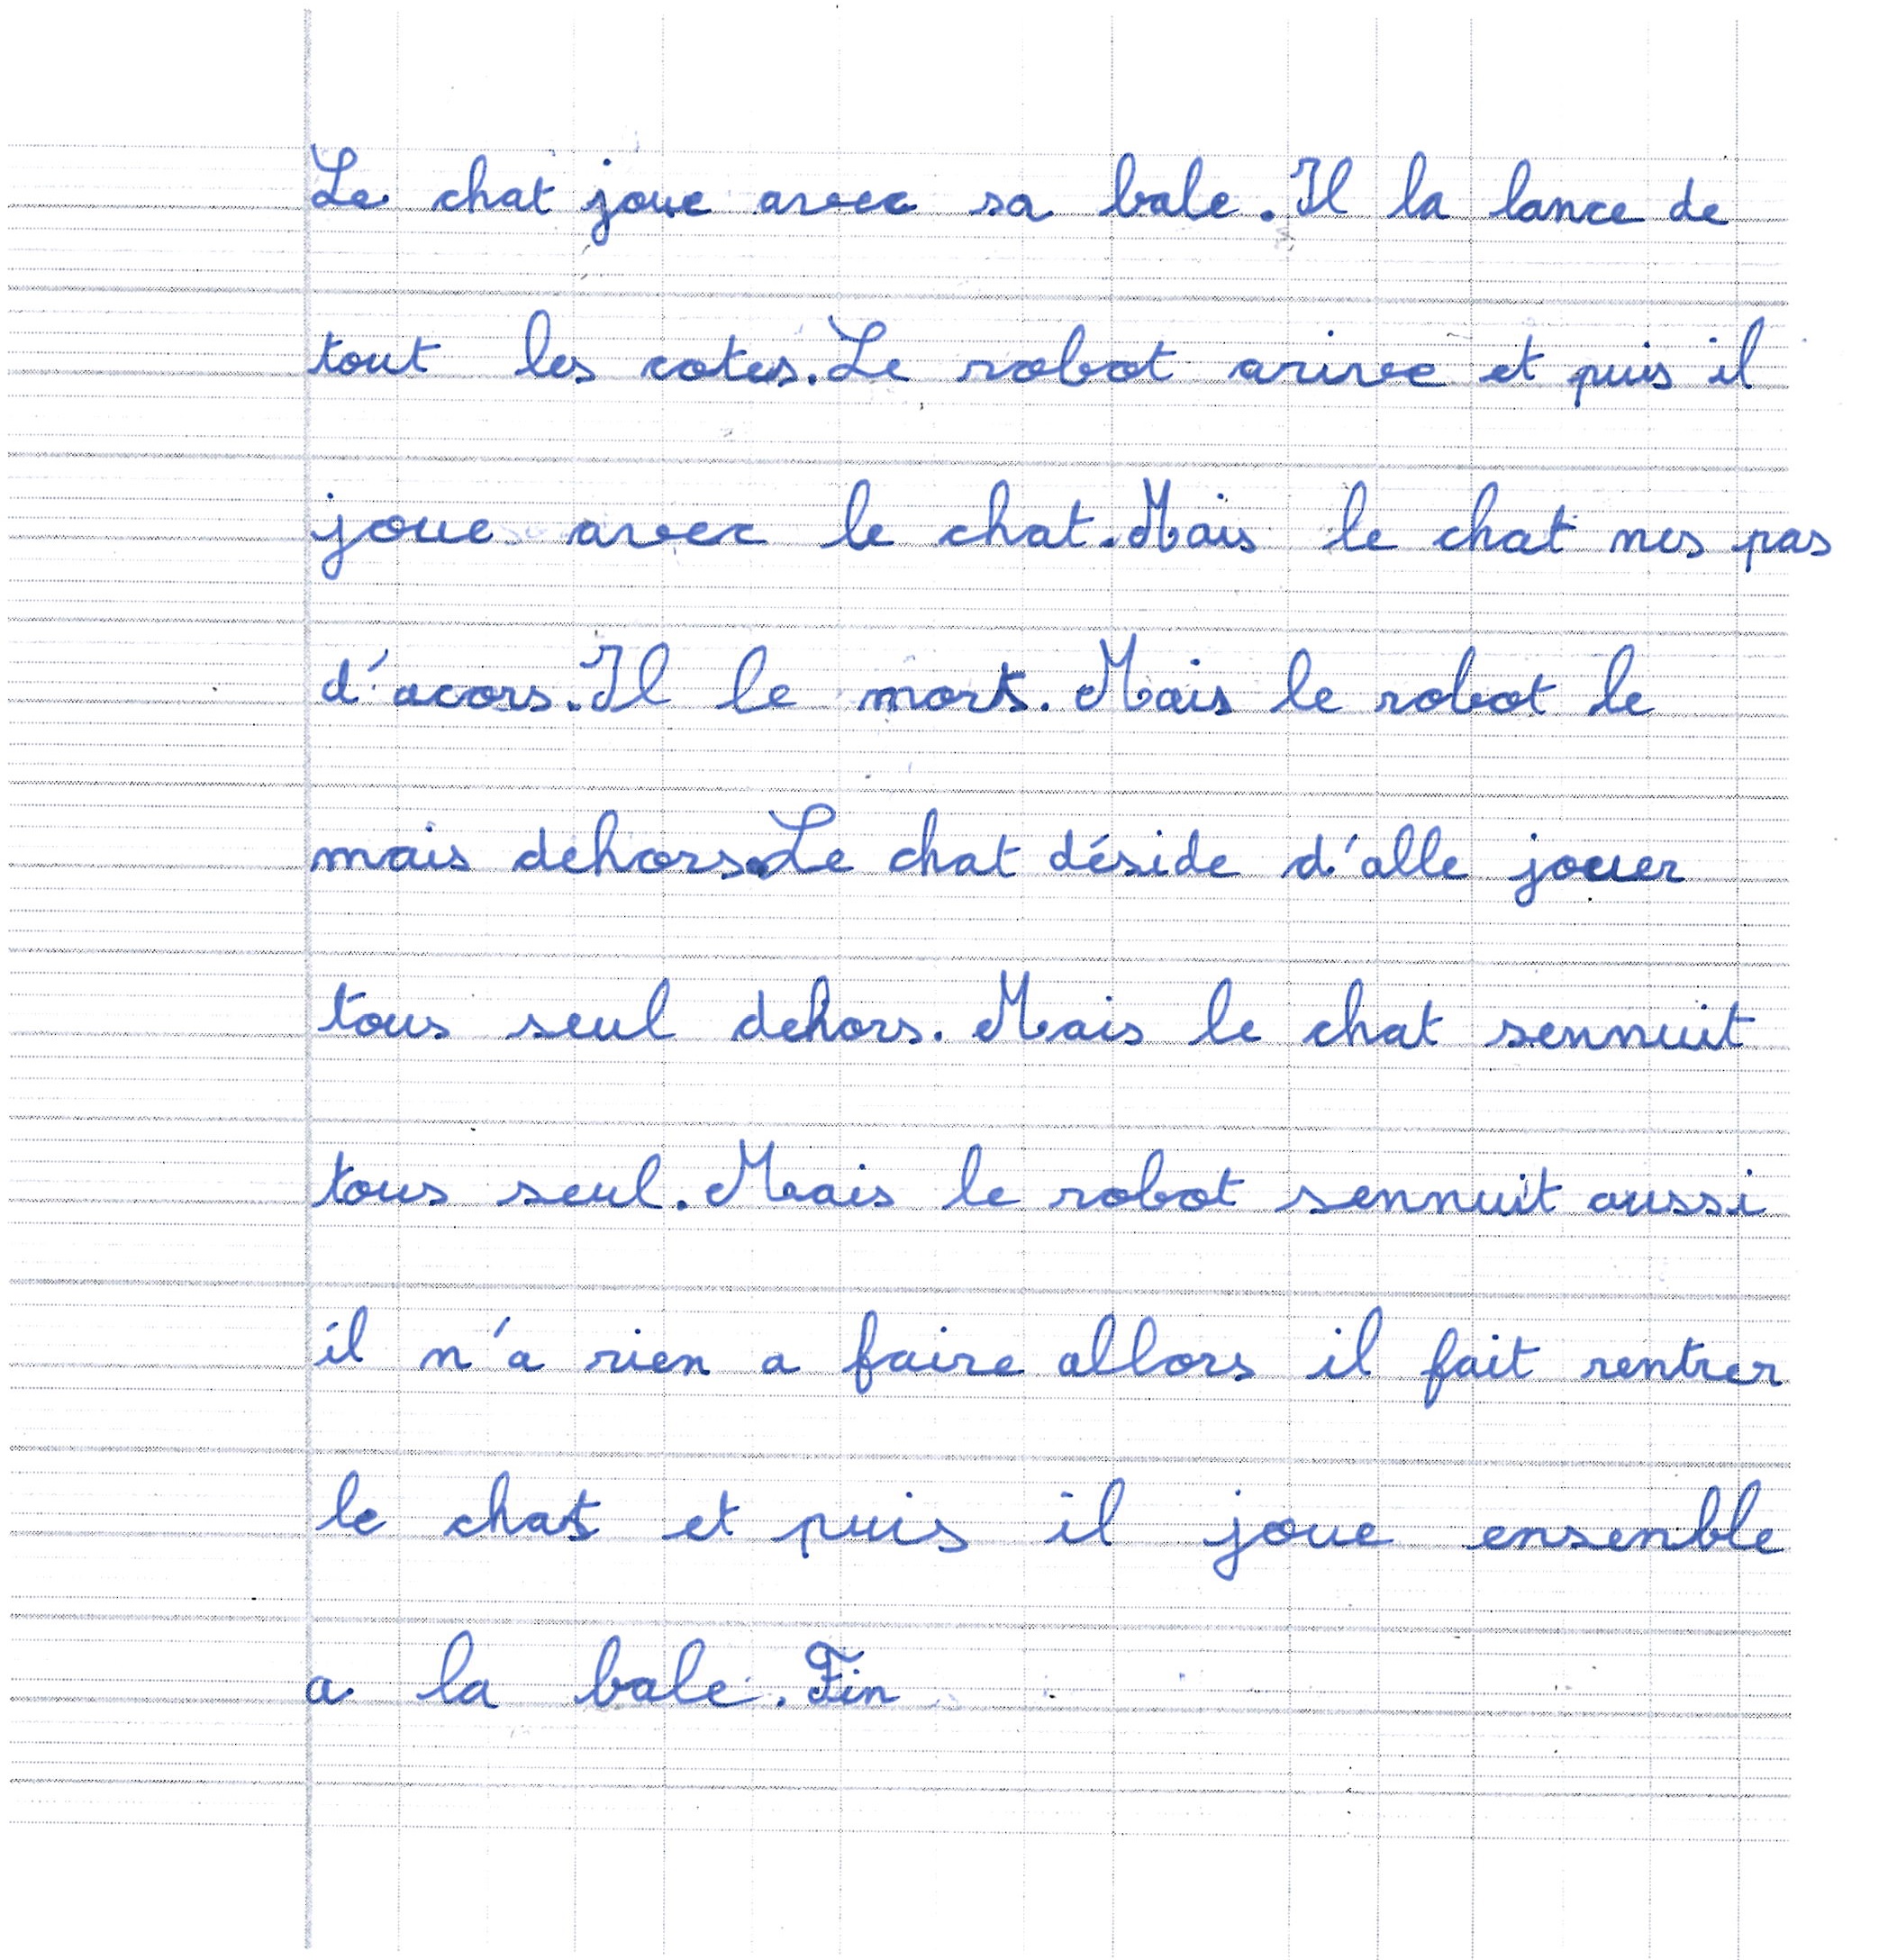 Le chat joue avec sa bale. Il la lance de
tout les cotes. Le robot arivee et puis il
joue avec le chat. Mais le chat nes pas
d'acors. Il le mort. Mais le robot le
mais dehors. Le chat déside d'alle jouer
tous seul dehors. Mais le chat sennuit
tous seul. Mais le robot sennuit aussi
il n'a rien a faire allors il fait rentrer
le chat et puis il joue ensenble
a la bale. Fin